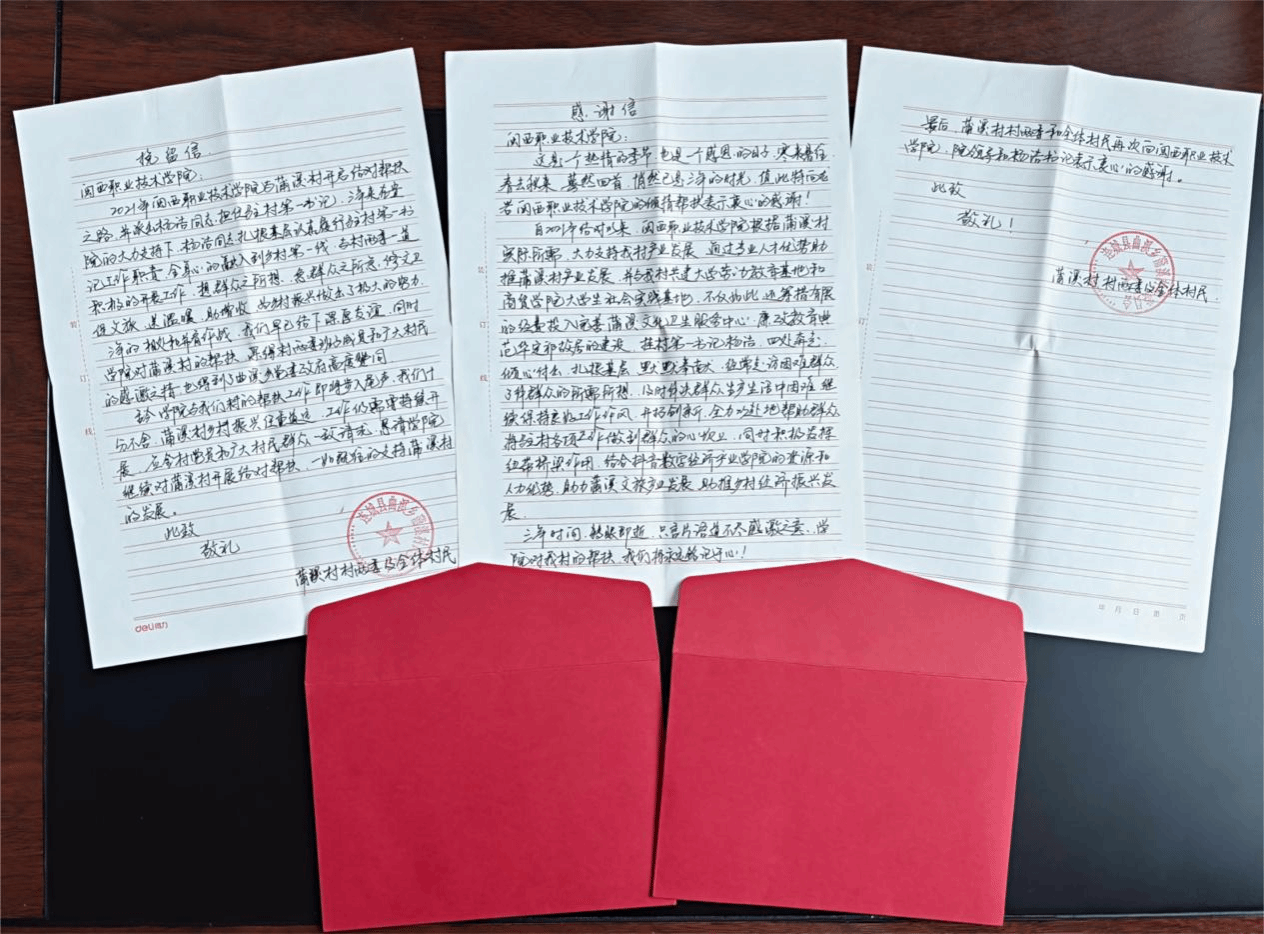 挽留信
闽西职业技术学院：
2021年闽西职业技术学院与蒲溪村开启结对帮扶
之路，并派出杨洁同志担任驻村第一书记，三年来在学
院的大力支持下，杨洁同志扎根基层认真履行驻村第一书
记工作职责，全身心的融入到乡村第一线，与村两委一道
积极的开展工作，想群众之所想，急群众之所急，修文卫
促文旅，送温暖，助增收，为乡村振兴做出了极大的努力，
三年的相处和并肩作战，我们早已结下深厚友谊，同时
学院对蒲溪村的帮扶，深得村两委班子成员和广大村民
的感激之情，也得到了曲溪乡党委政府高度赞同。
至今学院与我们村的帮扶工作即将步入尾声，我们十
分不舍，蒲溪村乡村振兴任重道远，工作仍需要持续开
展，应全村党员和广大村民群众一致请求，恳请学院
继续对蒲溪村开展结对帮扶，一如既往的支持蒲溪村
的发展。
此致
敬礼
蒲溪村村两委及全体村民
连城县曲溪乡蒲溪村
deli得力
装
订
线
感谢信
闽西职业技术学院：
这是一个热情的季节，也是一个感恩的日子，寒来暑往，
春去秋来，蓦然回首，悄然已是三年的时光，值此特向老
若闽西职业技术学院的倾情帮扶表示衷心的感谢！
自2021年结对以来，闽西职业技术学院根据蒲溪村
实际所需，大力支持我村产业发展，通过专业人才优势助
推蒲溪村产业发展，并与我村共建大学劳动教育基地和
商贸学院大学生社会实践基地，不仅如此，还筹措有限
的经费投入完善蒲溪文化卫生服务中心，廉政教育典
范华定邦故居的建设，驻村第一书记杨洁，四处奔走，
倾心付出，扎根基层，默默奉献，经常走访困难群众
了解群众的所需所想，及时解决群众生产生活中困难，继
续保持良好工作作风，开拓创新，全力以赴地帮助群众
将驻村各项工作做到群众的心坎上，同时积极发挥
纽带桥梁作用，结合抖音数字经济产业学院的资源和
人力优势，助力蒲溪文旅产业发展，助推乡村经济振兴发
展。
三年时间，转眼即逝，只言片语道不尽感激之意，学
院对我村的帮扶，我们将永远铭记于心！
装
订
线
最后，蒲溪村村两委和全体村民再次向闽西职业技术
学院，院领导和杨洁书记表示衷心的感谢。
此致
敬礼！
蒲溪村村两委及全体村民
连城县曲溪乡蒲溪村
装
订
年 月 日 第 页